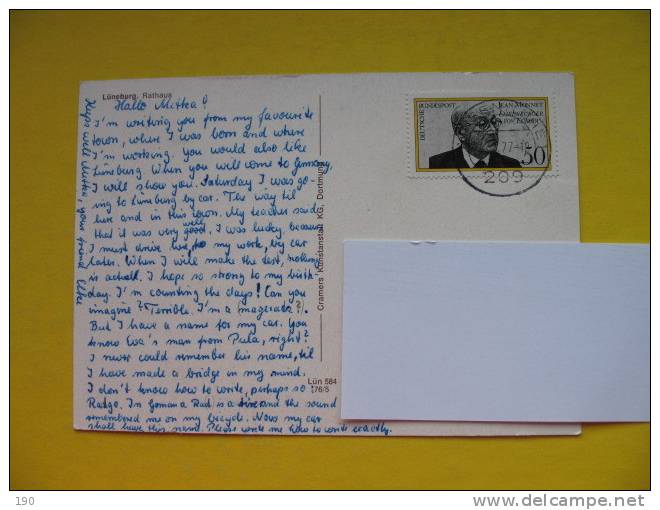 Lüneburg. Rathaus
Hallo Metka!
I'm writing you from my favourite
town, where I was born and where
I'm working. You would also like
Lüneburg. When you will come to Germany,
I will show you. Saturday I was go-
ing to Lüneburg by car. The way til
here and in this town. My teacher said
that it was very good, well I was lucky, because
I must drive to my work, by car
later. When I will make the test, nothing
is actuall. I hope so strong to my birth-
day. I'm counting the days! Can you
imagine? Terrible. I'm a
But I have a name for my car. You
know Eva's man from Pula, right?
I never could remember his name, til
I have made a bridge in my mind.
I don't know how to write, perhaps so!
Radgo. In German a Rad is a and the sound
remembered me on my bicycle. Now my car
shall have this name. Please write me how to write exactly.
Keep well Metka, your friend
Cramers Kunstanstalt KG, Dortmund
Lün 584
'76/5
DEUTSCHE BUNDESPOST
JEAN MONNET
EHRENBÜRGER
VON EUROPA
50
77-18
209
190
DELCAMPE.NET